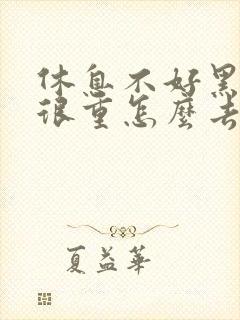 休息不好黑
很重怎麼去
夏益華